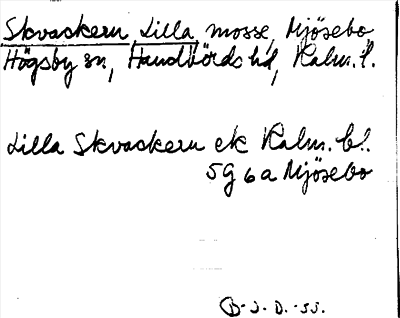 Skvackern, Lilla, mosse, Mjösebo,
Högsby sn, Handbörds hd, Kalm. l.
Lilla Skvackern ek Kalm. bl.
5G 6a Mjösebo
B-J. D. -55.